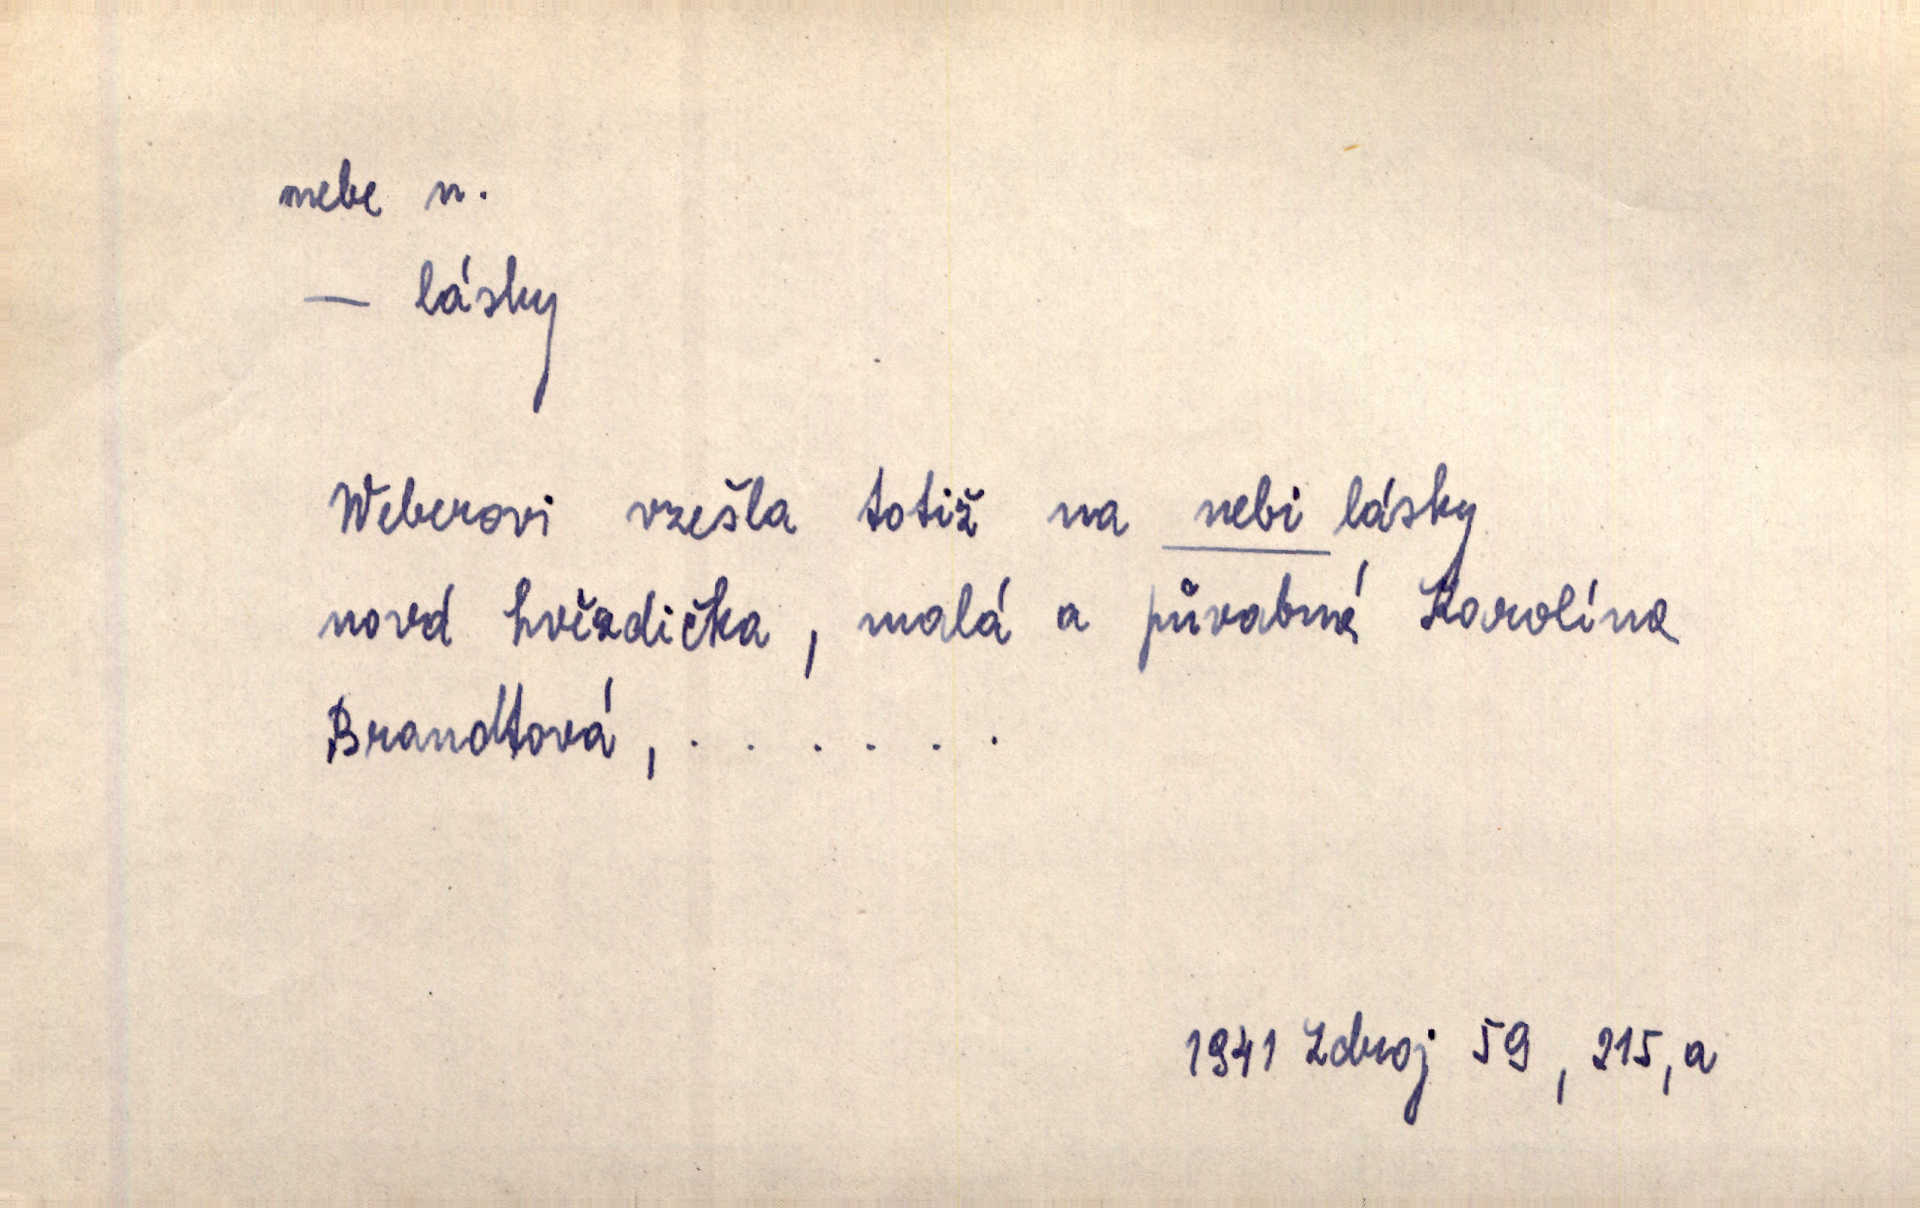 nebe n.
— lásky
Weberovi vzešla totiž na nebi lásky
nová hvězdička, malá a půvabná Karolína
Brandtová, . . . . . .
1941 Zdroj 59, 215, a